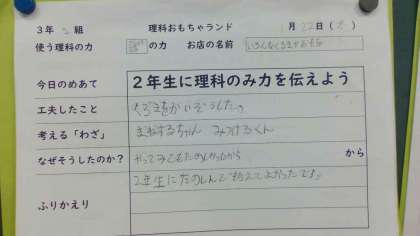 3年 組 理科おもちゃランド 月22日( )
使う理科の力 の力 お店の名前
今日のめあて 2年生に理科のみ力を伝えよう
工夫したこと くるまをかいぞうした。
考える「わざ」 まねするちゃん みつけるくん
なぜそうしたのか? やってみて たのしかったから から
ふりかえり 2年生にたのしんで もらえてよかったです。